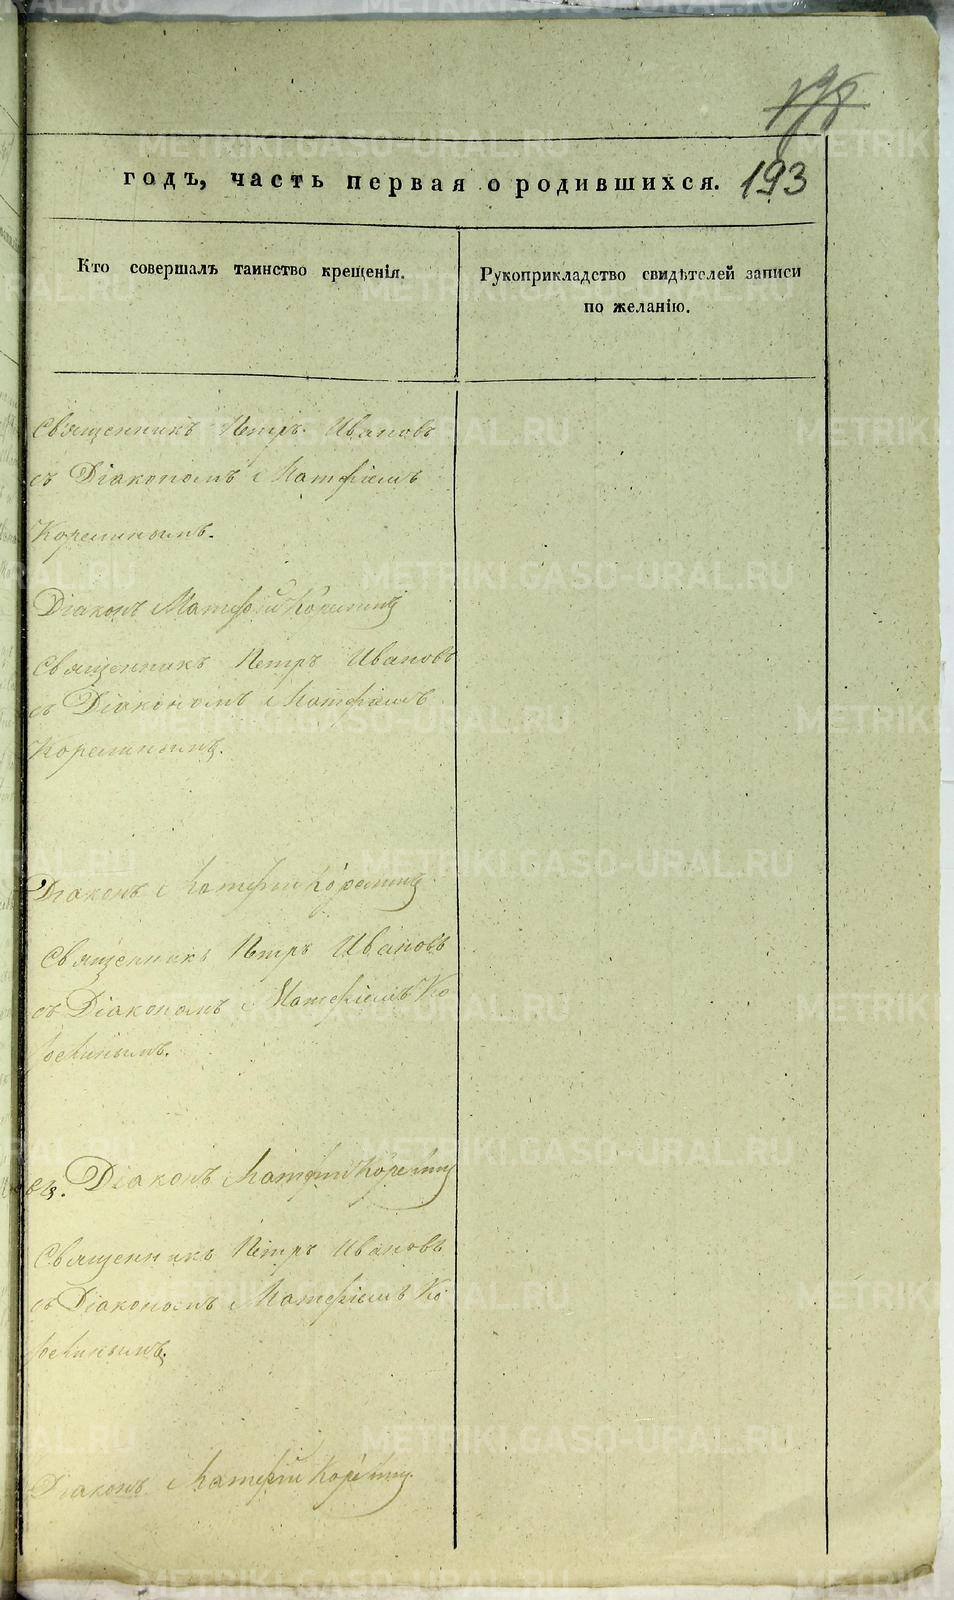 198
193
годъ, часть первая о родившихся.
Кто совершалъ таинство крещенія.
Рукоприкладство свидѣтелей записи
по желанію.
Священникъ Петръ Ивановъ
съ Діакономъ Матѳіемъ
Кореминымъ.
Діаконъ Матфій Кореминъ
Священникъ Петръ Ивановъ
съ Діакономъ Матфіемъ
Кореминымъ.
Діаконъ Матфій Кореминъ
Священникъ Петръ Ивановъ
съ Діакономъ Матфіемъ Ко
реминымъ.
Діаконъ Матфій Кореминъ
Священникъ Петръ Ивановъ
съ Діакономъ Матфіемъ Ко
реминымъ.
Діаконъ Матфій Кореминъ
METRIKI.GASO-URAL.RU